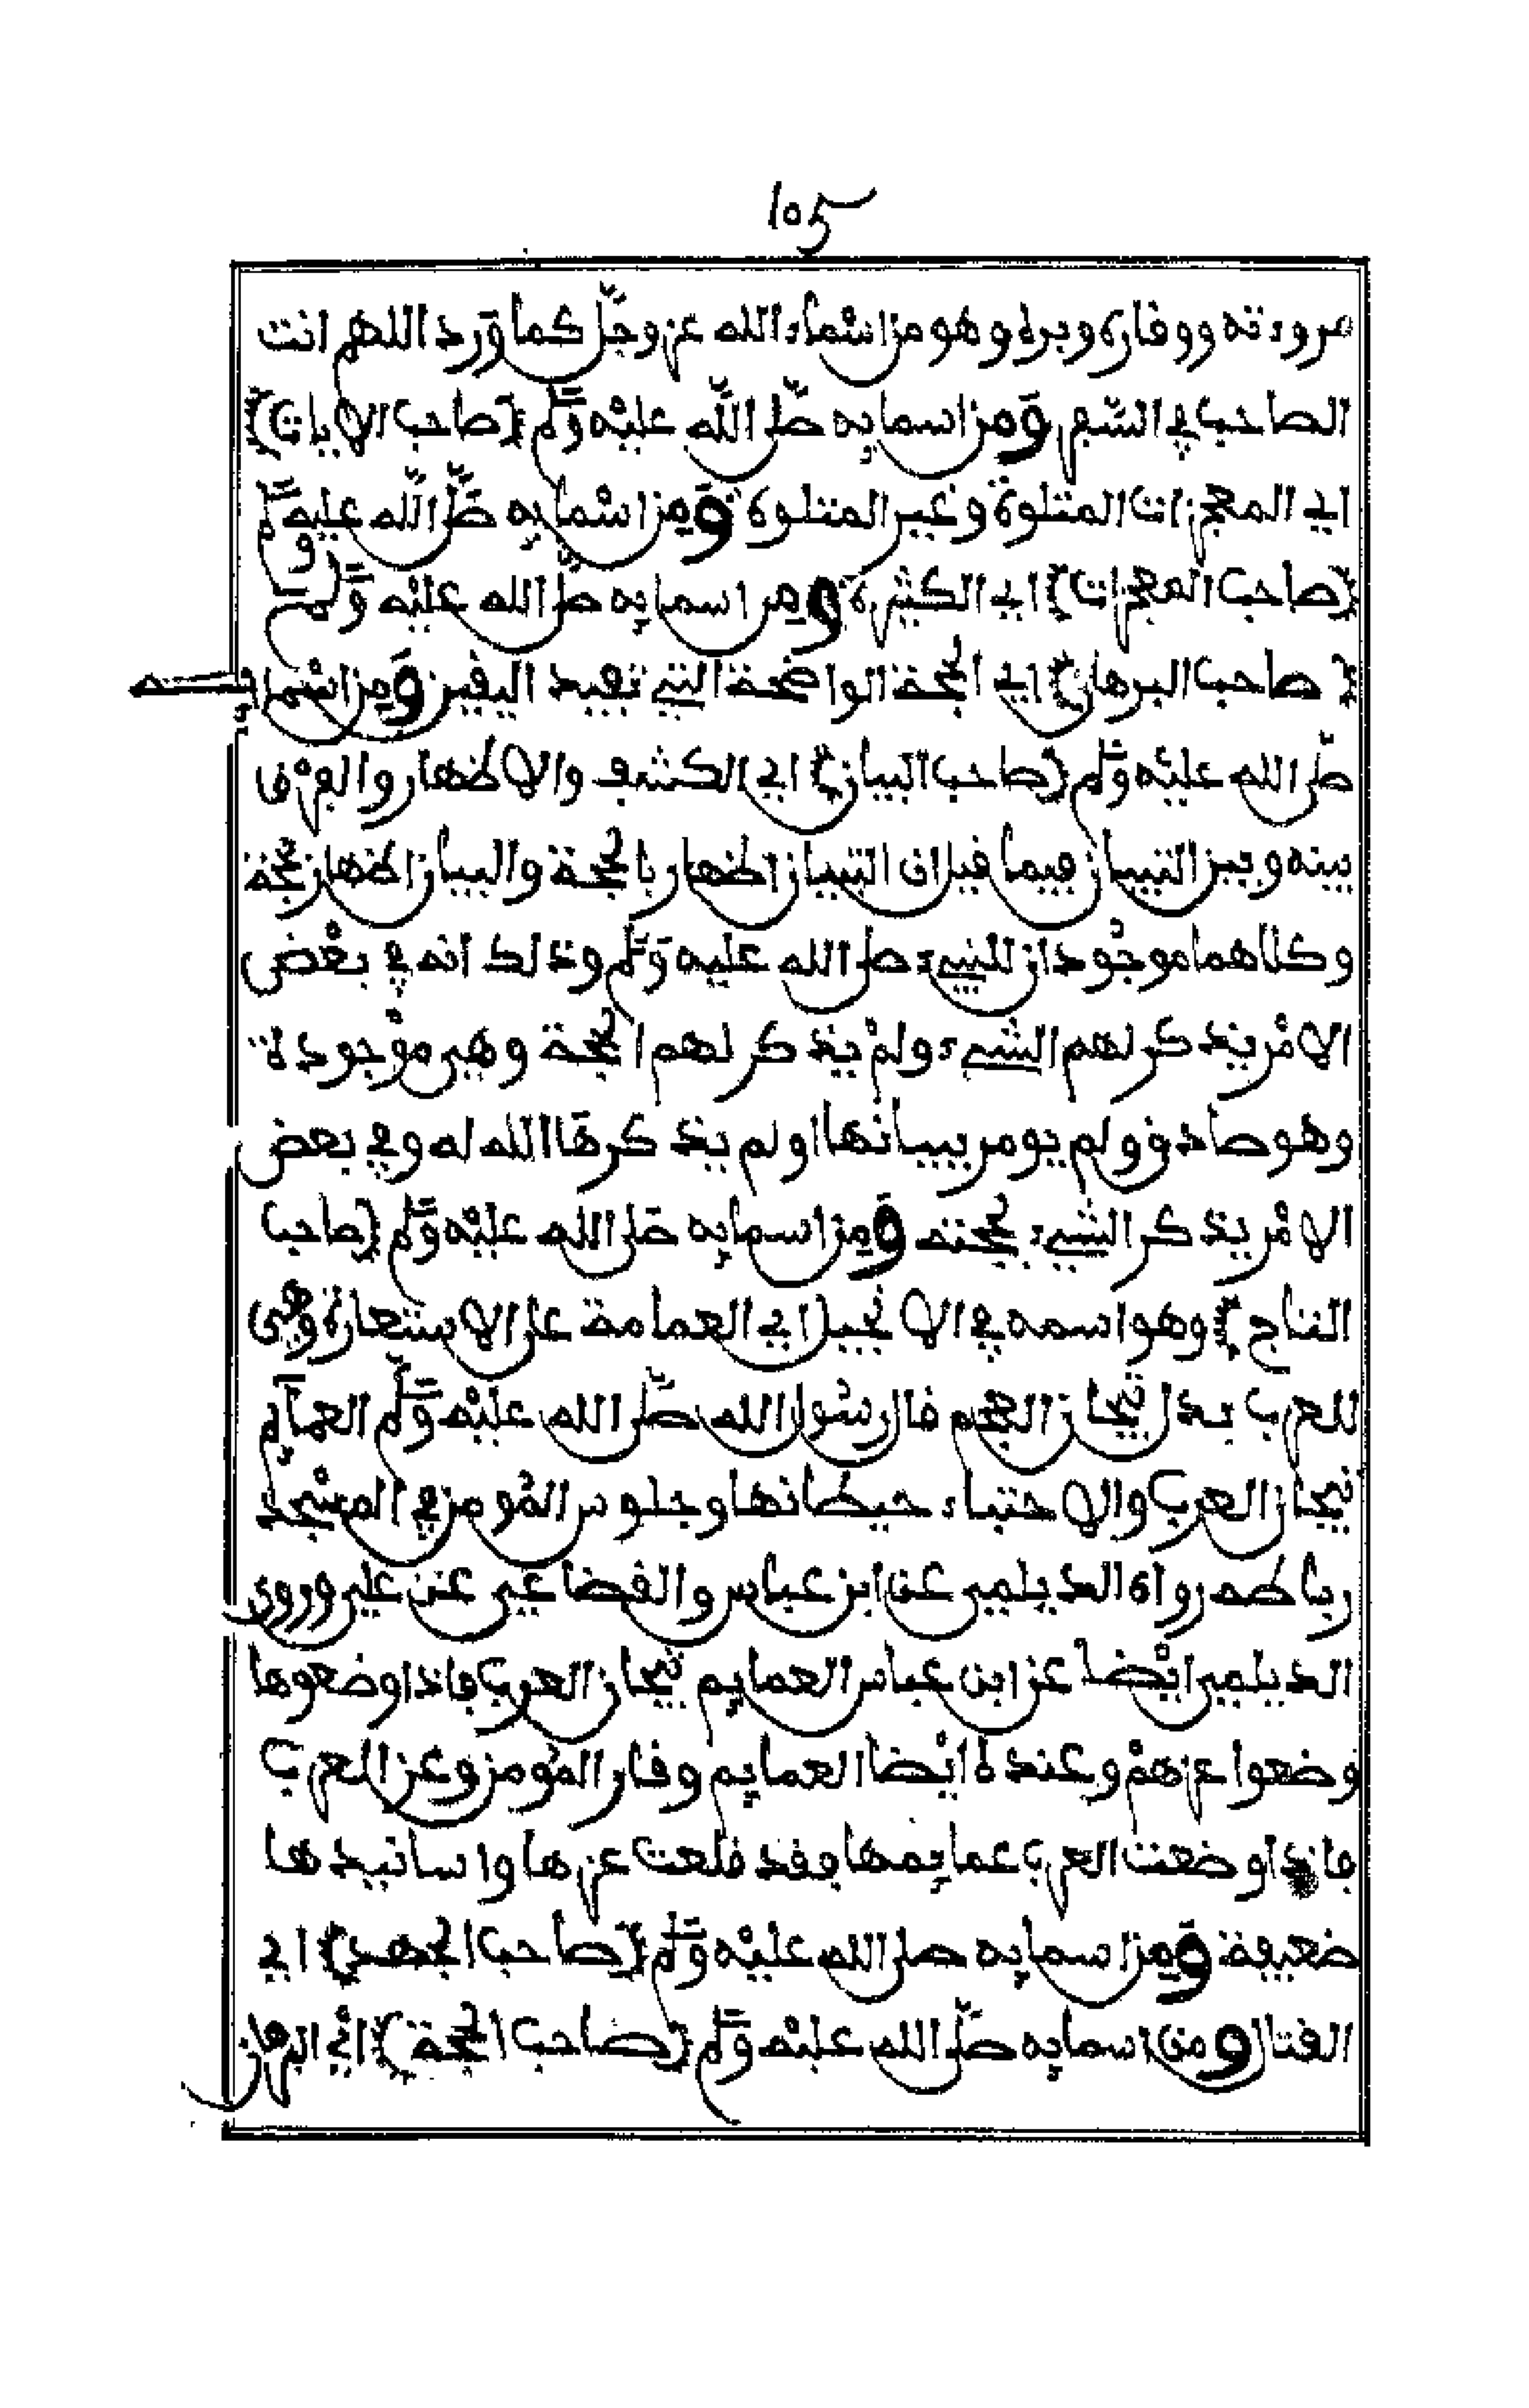 105
مروءته ووقاره وبره وهو من اسماء الله عز وجل كما ورد اللهم انت
الصاحب في السفر ومن اسمايه صلى الله عليه وسلم (صاحب الايات)
اي المعجزات المتلوة وغير المتلوة ومن اسمايه صلى الله عليه وسلم
(صاحب المعجزات) اي الكثيرة ومن اسمايه صلى الله عليه وسلم
(صاحب البرهان) اي الحجة الواضحة التي تفيد اليقين ومن اسمايه
صلى الله عليه وسلم (صاحب البيان) اي الكشف والاظهار والفرق
بينه وبين التبيان فيما قيل ان التبيان اظهار بالحجة والبيان اظهار بحجة
وكلاهما موجودان للنبيء صلى الله عليه وسلم وذلك انه في بعض
الامر يذكر لهم الشيء ولم يذكر لهم الحجة وهي موجودة
وهو صادق ولم يومر ببيانها او لم يذكرها الله له وفي بعض
الامر يذكر الشيء بحجته ومن اسمايه صلى الله عليه وسلم (صاحب
التاج) وهو اسمه في الانجيل اي العمامة على الاستعارة وهي
للعرب بدل تيجان العجم قال رسول الله صلى الله عليه وسلم العمايم
تيجان العرب والاحتباء حيطانها وجلوس المومن في المسجد
رباطه رواه الديلمي عن ابن عباس والقضاعي عن علي وروى
الديلمي ايضا عن ابن عباس العمايم تيجان العرب فاذا وضعوها
وضعوا عزهم وعنده ايضا العمايم وقار المومن وعز العرب
فاذا وضعت العرب عمايمها وفد فلعت عزها واسانيدها
ضعيفة ومن اسمايه صلى الله عليه وسلم (صاحب الجهد) اي
القتال ومن اسمايه صلى الله عليه وسلم (صاحب الحجة) اي البرهان